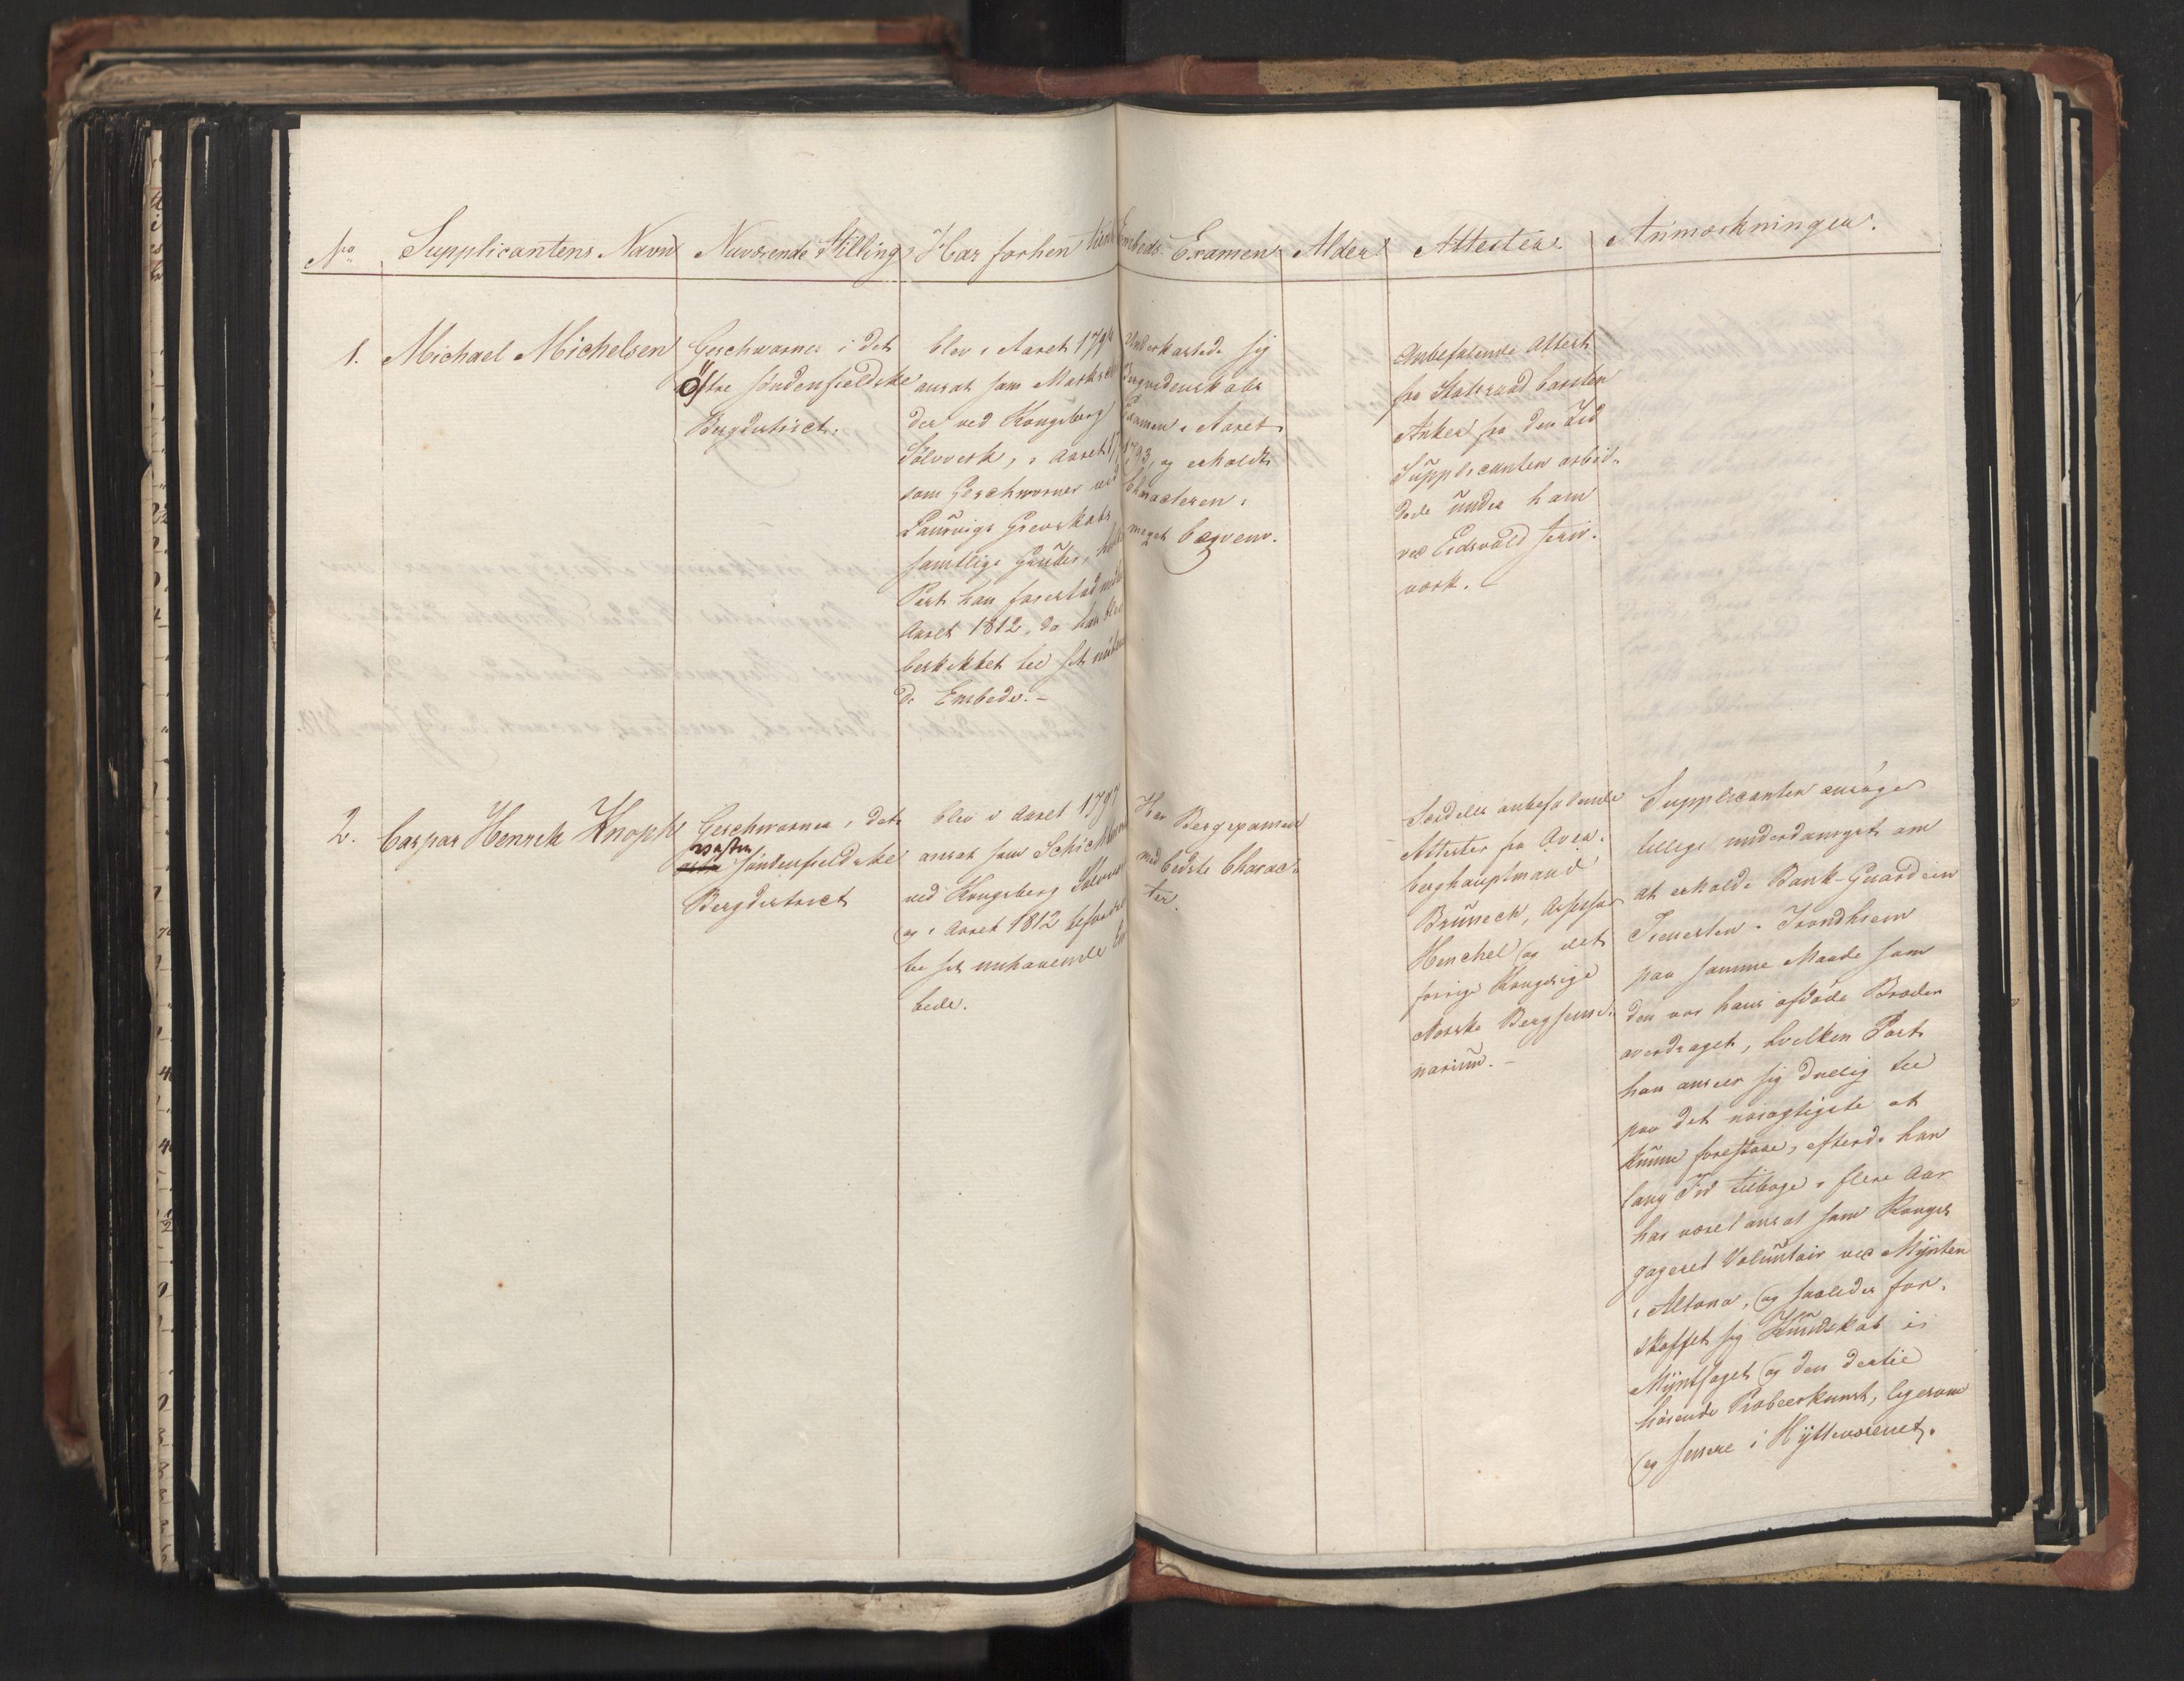 No
Supplicantens Navn
Nuværende Stilling
Har forhen tient
Embeds-Examen
Alder
Attester.
Anmærkninger.
1.
Michael Michelsen
Geschworner i det
Østre Søndenfieldske
Bergdistrict.
blev i Aaret 1794
ansat som Marksch
der ved Kongsberg
Sølvverk, i Aaret 17
som Geschworner ved
Laurvigs Grevskabs
samtlige Gruber,
Post han forestod
Aaret 1812, da han blev
beskikket til sit
de Embede.-
Underkastede sig
Bergvidenskabs
Examen i Aaret
1793, og erholdt
Characteren:
meget beqvem.
Anbefalende Attest
fra Statsraad Carsten
Anker fra den Tid
Supplicanten arbei-
dede under ham
ved Eidsvold Jern-
værk.
2.
Caspar Henrik Knoph
Geschworner i det
vestre
østre Søndenfieldske
Bergdistrict
blev i Aaret 1797
ansat som Schichtm
ved Kongsberg Sølvv
og i Aaret 1812 befordret
til sit innhavende Em
bede.
Har Bergexamen
med bedste Charac-
ter.
Særdeles anbefalende
Attester fra Over-
berghauptmand
Brünech, Assessor
Henchel og det
forrige Kongelige
Norske Bergsemi-
narium.-
Supplicanten ansøger
tillige underdanigst om
at erholde Bank-Guardein
Tienesten i Trondhiem
paa samme Maade som
den var hans afdøde Broder
overdraget, hvilken Post
han anseer sig duelig til
paa det nøiagtigste at
kunne forestaae, efterdi han
lang Tid tilbage i flere Aar
har været ansat som Kongel
gageret Voluntair ved Mynten
i Altona, og saaledes for-
skaffet sig Kundskab i
Myntfaget og den dertil
hørende Probeerkunst, ligesom
og senere i Hyttevæsenet.